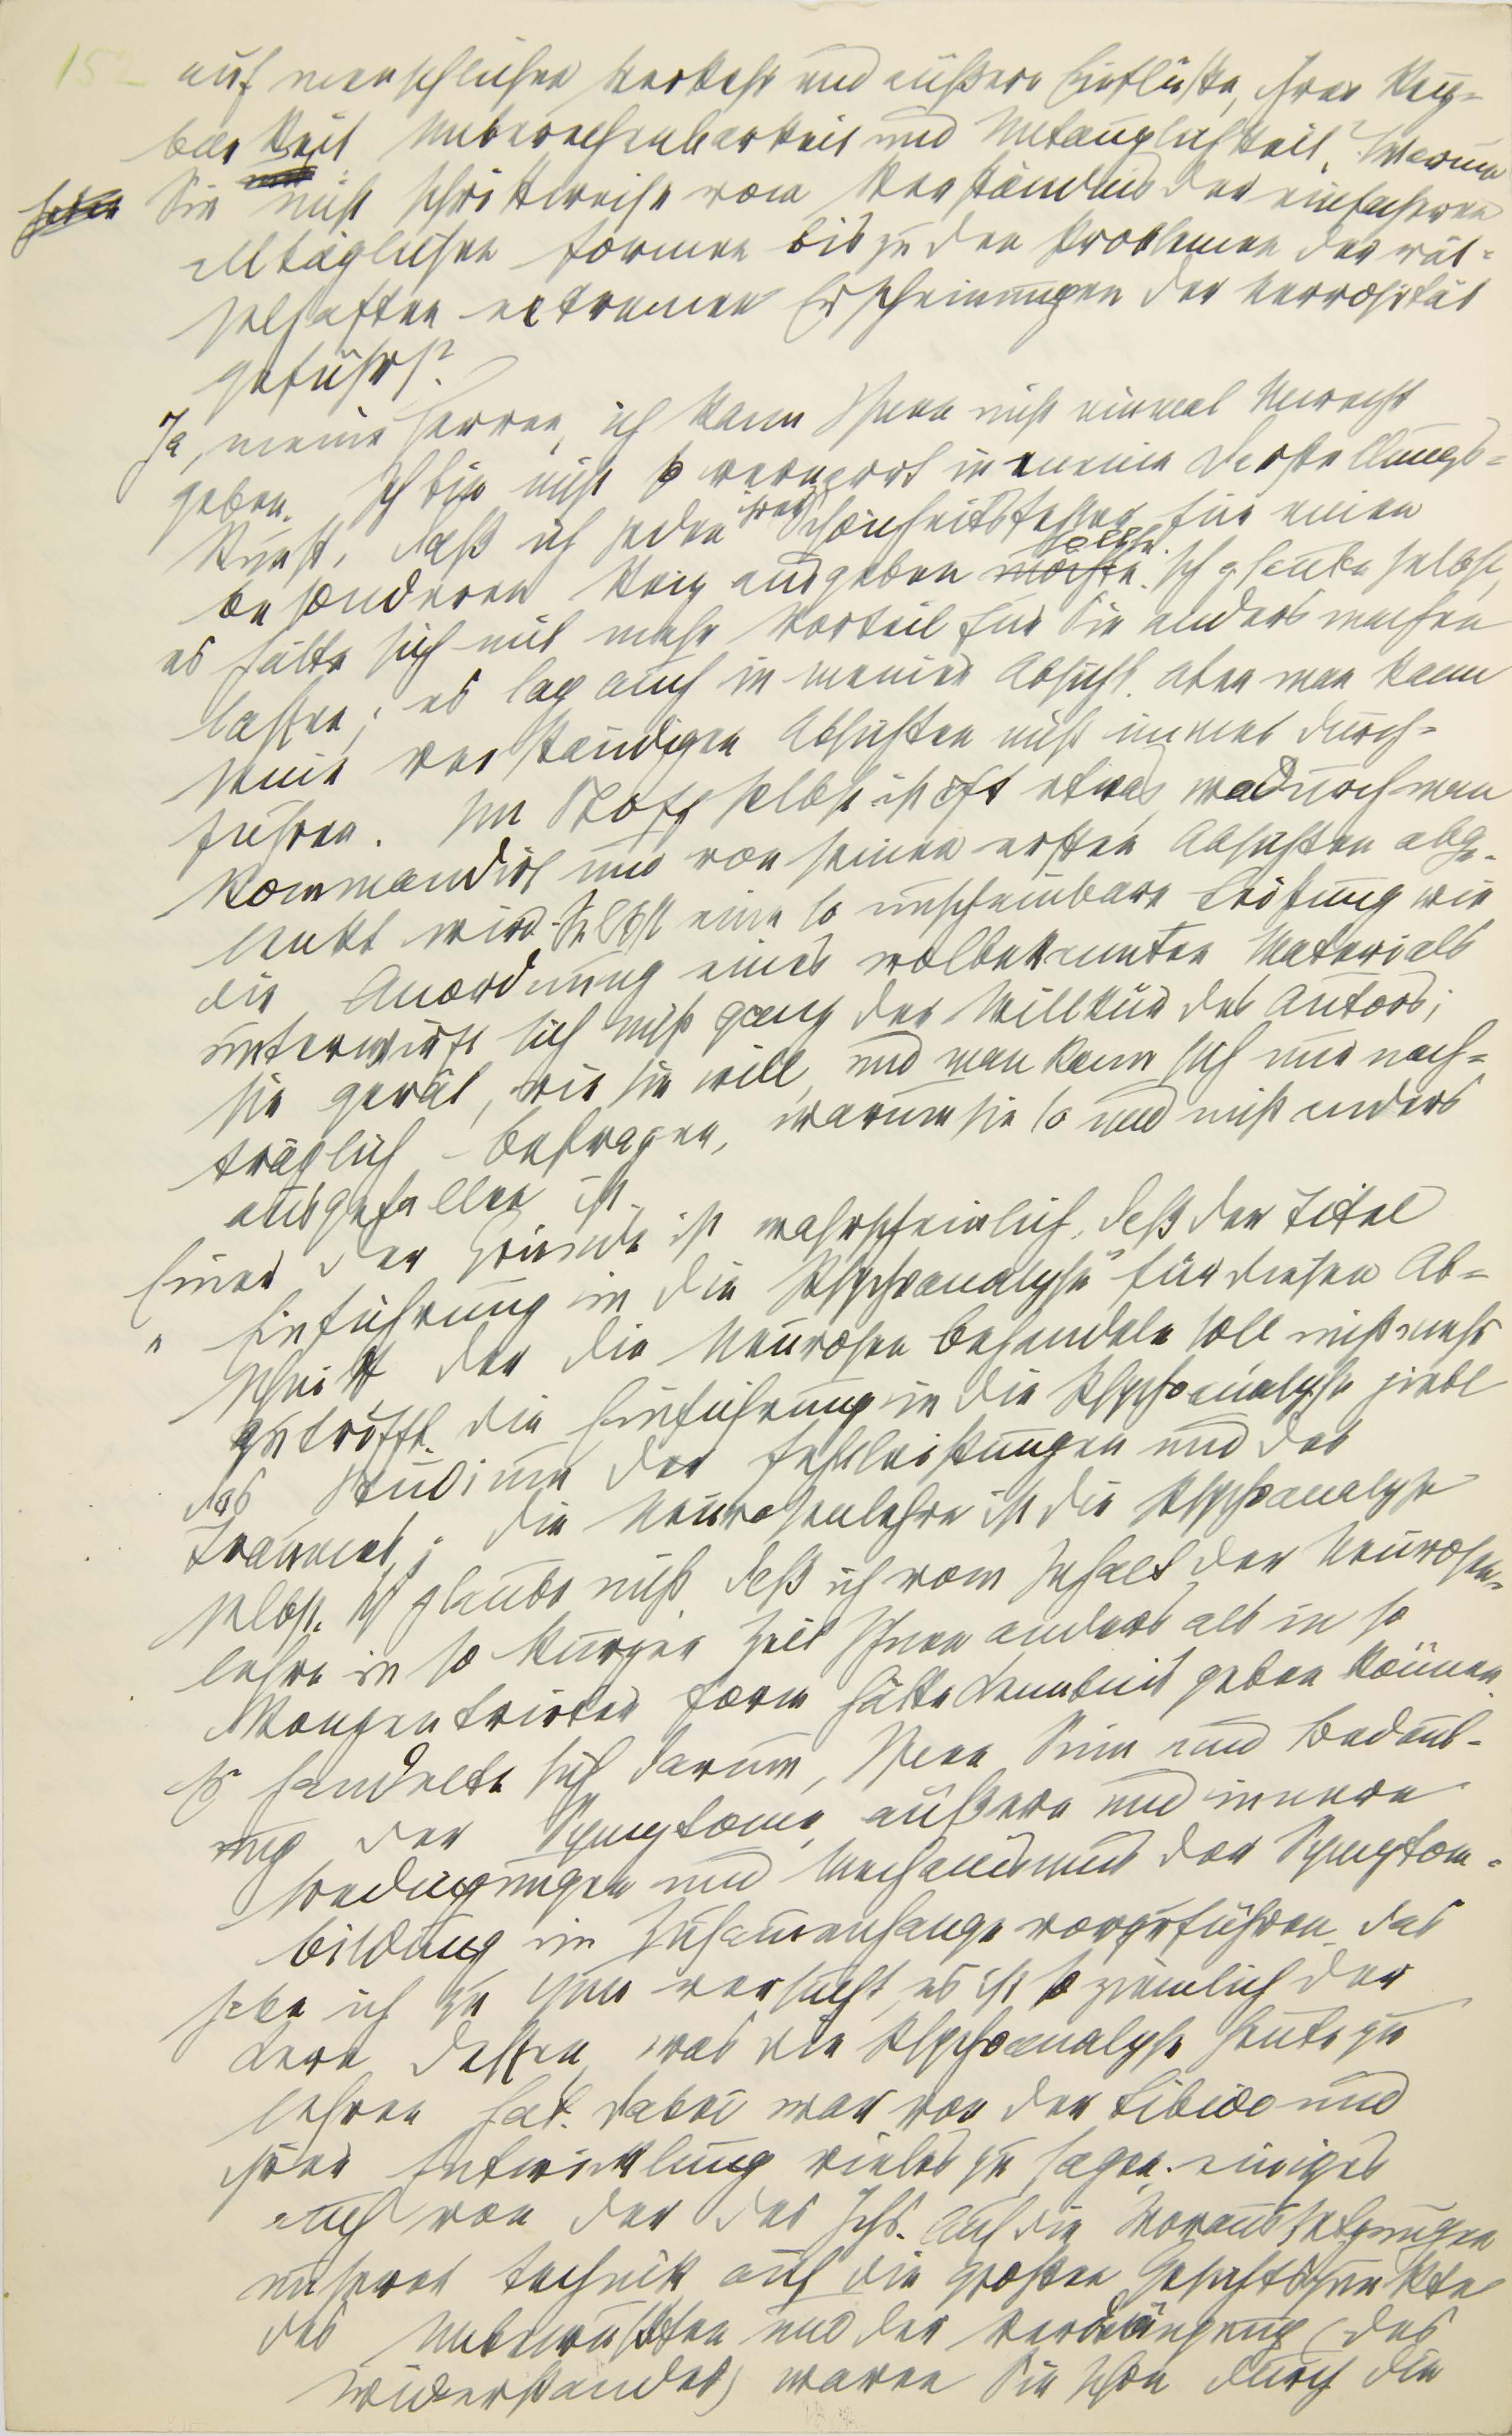 152
auf menschlichen Verkehr und äußere Einflüsse, ihrer Reiz-
barkeit Unberechenbarkeit und Untauglichkeit? Warum
Sie nicht schrittweise vom Verständnis der einfacheren
alltäglichen Formen bis zu den Problemen der rät-
selhaften extremen Erscheinungen der Nervosität
geführt?
Ja, meine Herren, ich kann Ihnen nicht einmal Unrecht
geben. Ich bin nicht so vernarrt in meine Darstellungs-
kunst, daß ich jeden ihrer Schönheitsfehler für einen
besonderen Reiz ausgeben möchte sollte. Ich glaube selbst,
es hätte sich mit mehr Vorteil für Sie anders machen
lassen; es lag auch in meiner Absicht. Aber man kann
seine verständigen Absichten nicht immer durch-
führen. Im Stoff selbst ist oft etwas, wodurch man
kommandirt und von seinen ersten Absichten abge-
lenkt wird. Selbst eine so unscheinbare Leistung wie
die Anordnung eines wolbekannten Materials
unterwirft sich nicht ganz der Willkür des Autors;
sie gerät, wie sie will, und man kann sich nur nach-
träglich befragen, warum sie so und nicht anders
ausgefallen ist.
Einer der Gründe ist wahrscheinlich, daß der Titel
„Einführung in die Psychoanalyse" für diesen Ab-
schnitt der die Neurosen behandeln soll nicht mehr
zutrifft. Die Einführung in die Psychoanalyse giebt
das Studium der Fehlleistungen und des
Traumes; die Neurosenlehre ist die Psychoanalyse
selbst. Ich glaube nicht daß ich vom Inhalt der Neurosen-
lehre in so kurzer Zeit Ihnen anders als in so
konzentrirter Form hätte Kenntnis geben können.
Es handelte sich darum, Ihnen Sinn und Bedeut-
ung der Symptome, äußere und innere
Bedingungen und Mechanismus der Symptom-
bildung im Zusammenhange vorzuführen. Das
habe ich zu tun versucht; es ist so ziemlich der
Kern dessen, was die Psychoanalyse heute zu
lehren hat. Dabei war von der Libido und
ihrer Entwicklung vieles zu sagen, einiges
auch von der des Ichs. Auf die Voraussetzungen
unserer Technik, auf die großen Gesichtspunkte
des Unbewußten und der Verdrängung (des
Widerstandes) waren Sie schon durch die